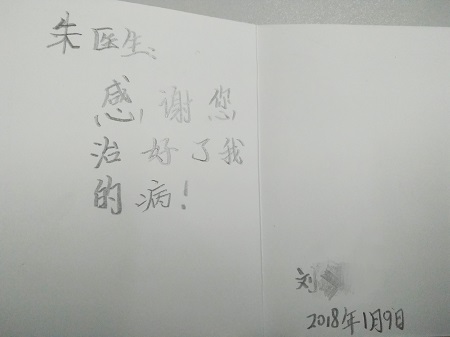 朱医生:
感谢您
治好了我
的病!
刘
2018年1月9日